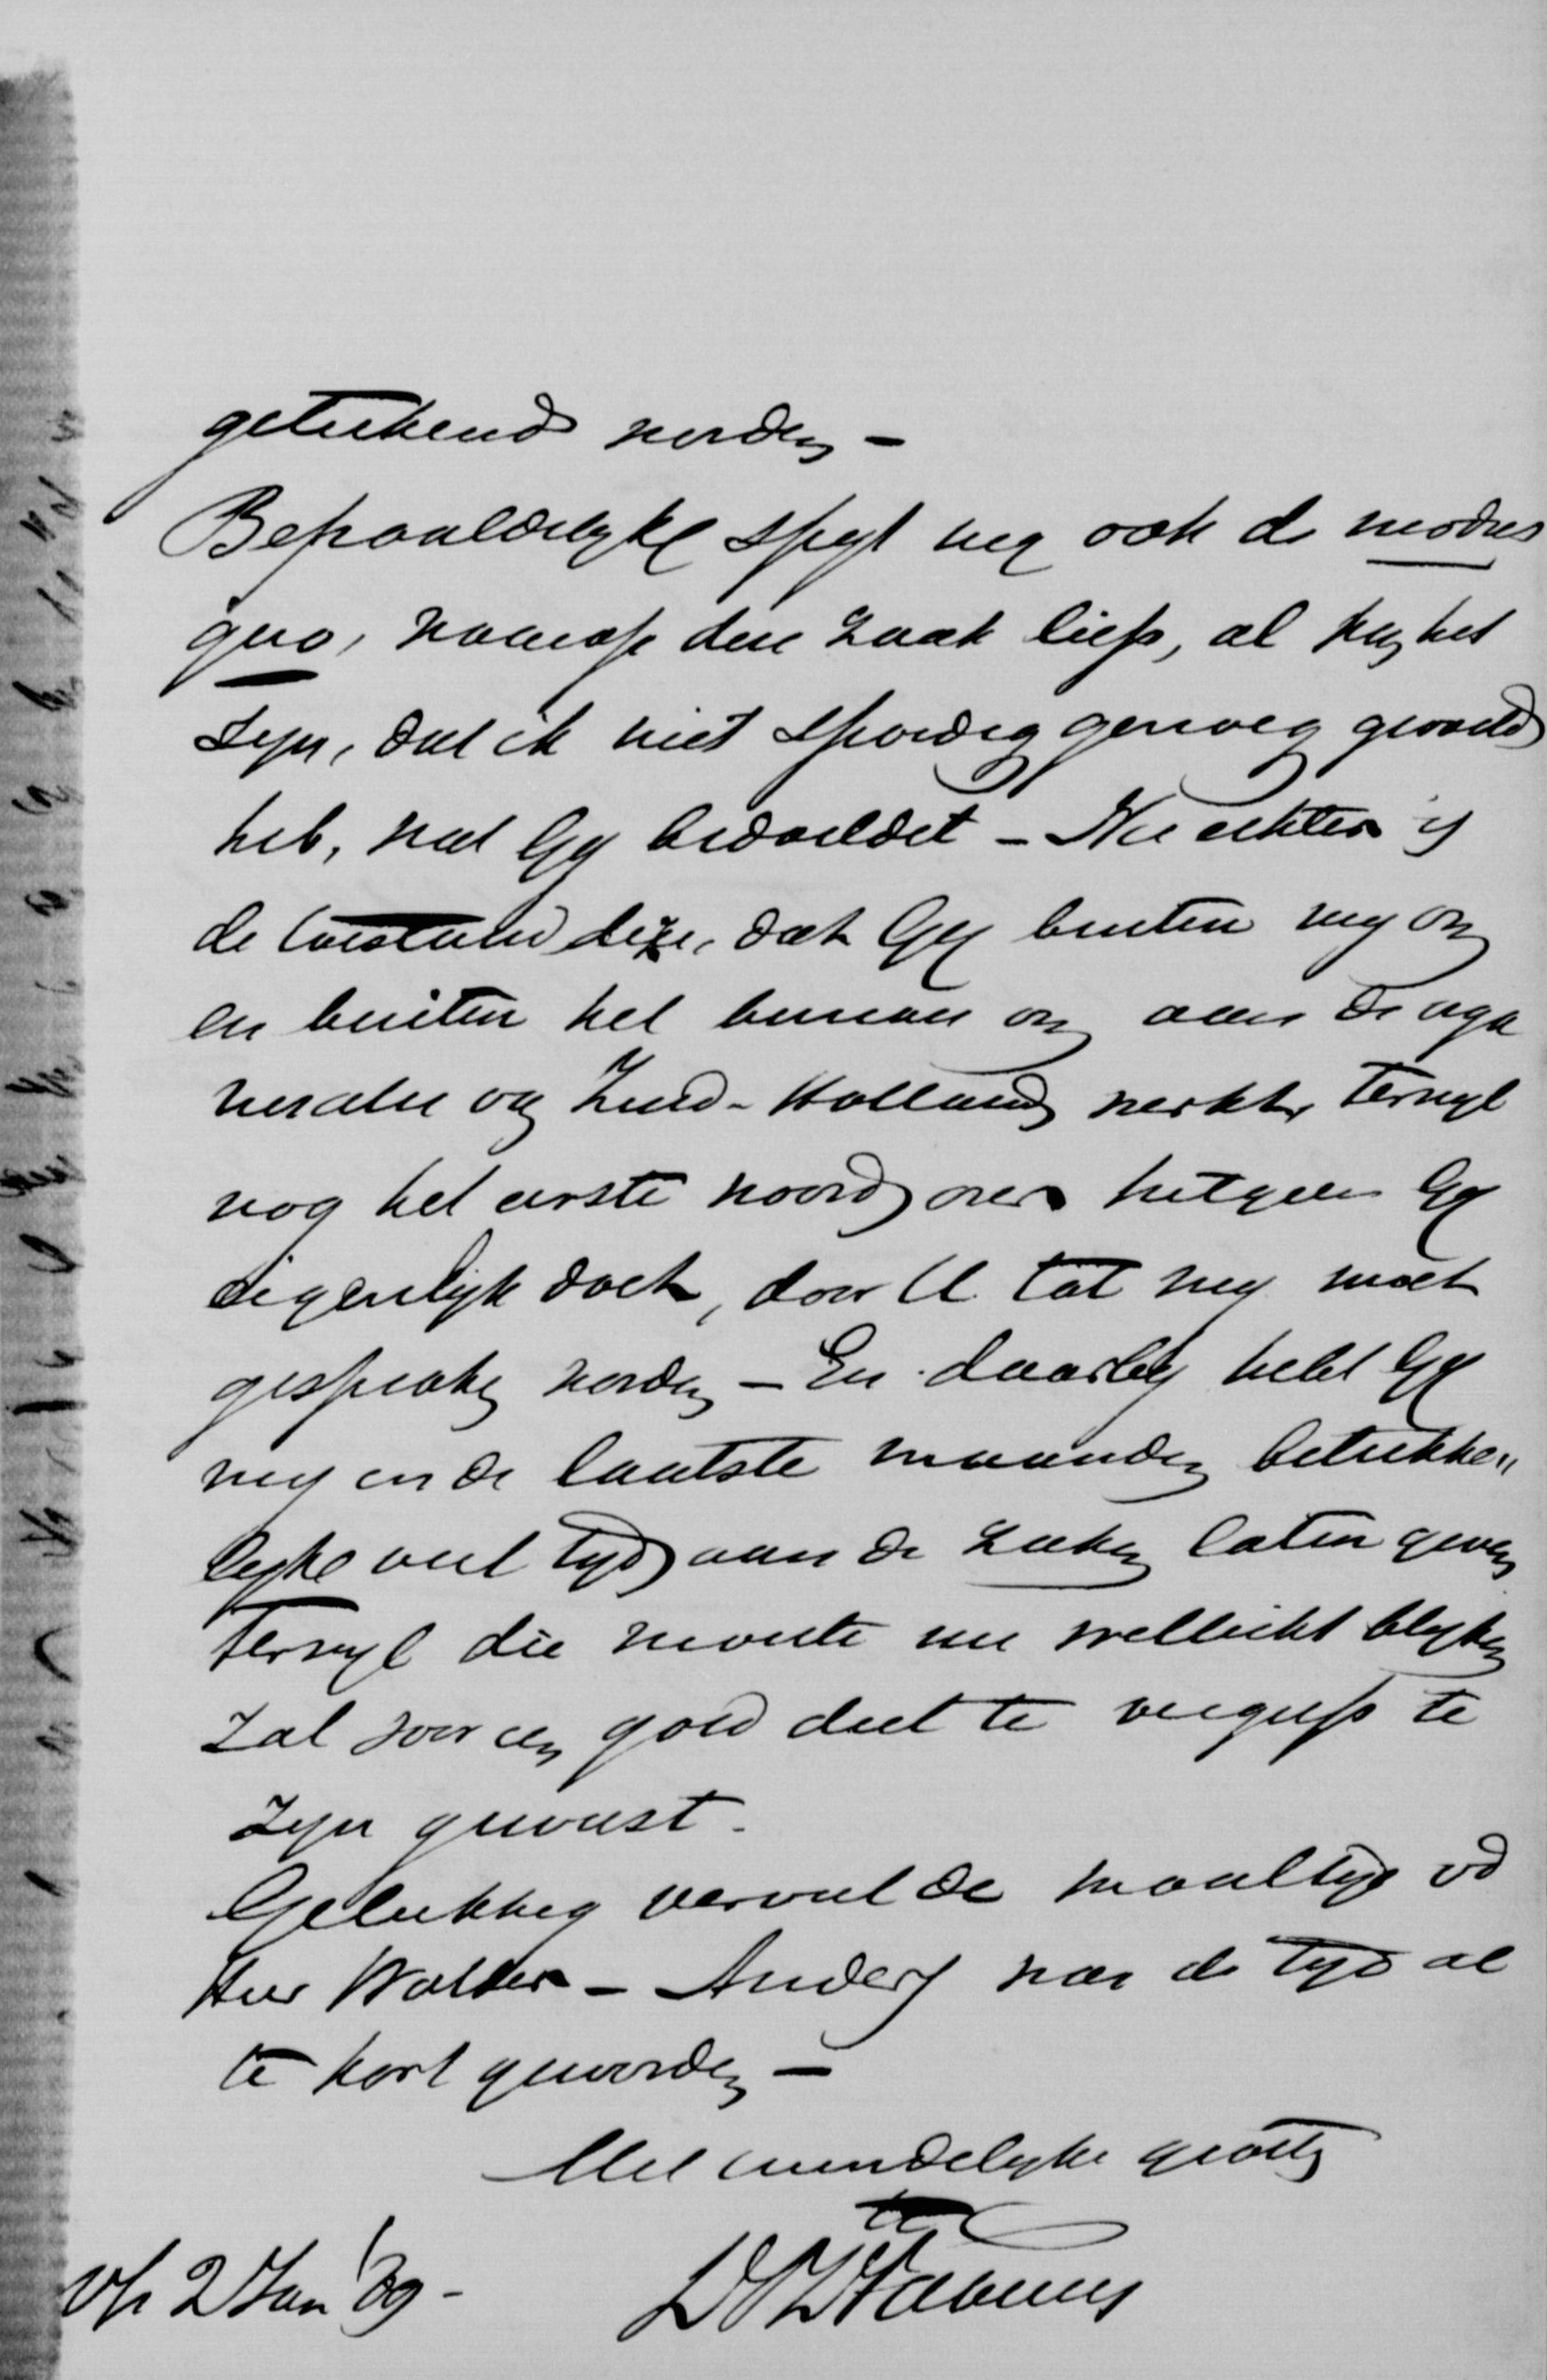 geteekend worden –
Bepaaldelyk spyt my ook de modus
quo, waarop deze zaak liep, al kan het
zyn, dat ik niet spoedig genoeg geraden
heb, wat Gy bedoeldet – Nu echter is
de toestand deze, dat Gy buiten my om
en buiten het bureau om aan de
en Zuid-Holland werkt, terwyl
nog het eerste woord over hetgeen Gy
eigenlyk doet, door U tot my moet
gesproken worden – En daarby hebt Gy
my in de laatste maanden betrekke„
lyke veel tyd aan de zaken laten geven
terwyl die moeite nu wellicht blyken
zal voor een goed deel te vergeefs te
zyn geweest.
Gelukkig verviel de maaltyd vd
Heer Wolter – Anders was de tyd al
te kort geworden –
Met vriendelyke groeten
2 Jan '89 –